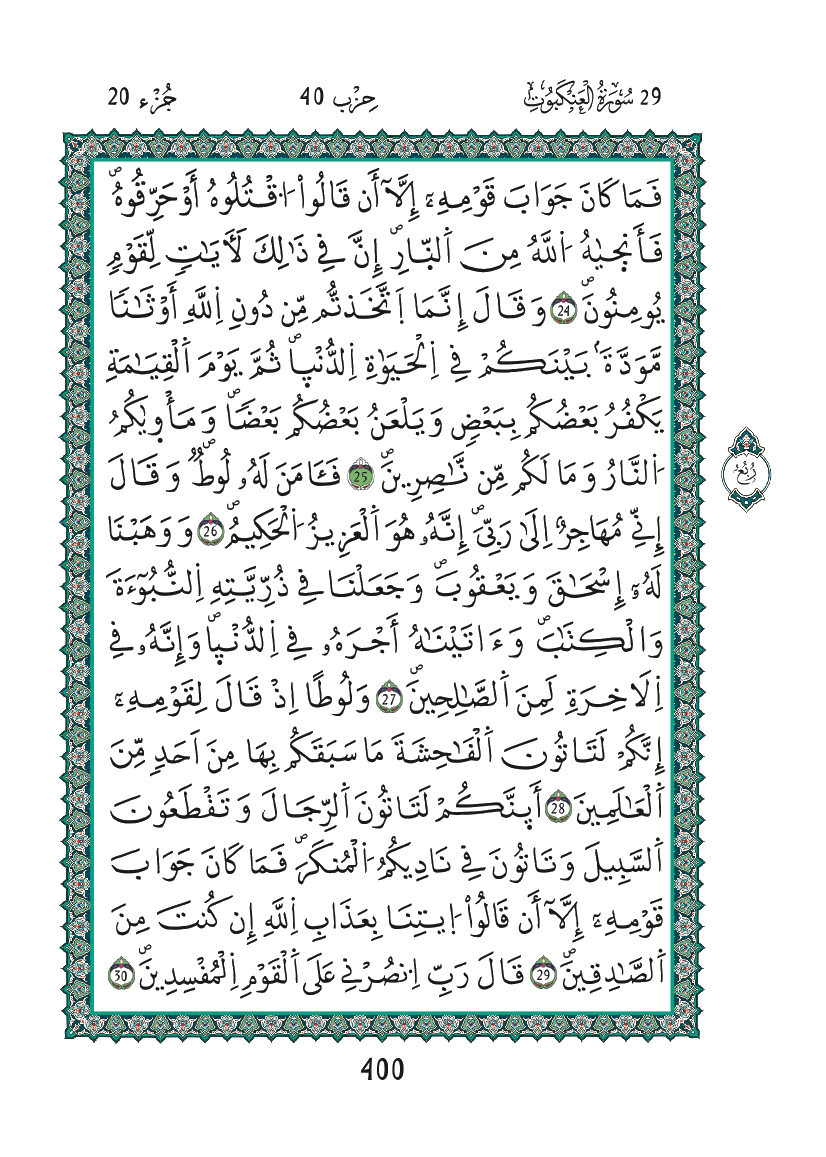 29 سُورَةُ الْعَنكَبُوتِ حِزْب 40 جُزْء 20
فَمَا كَانَ جَوَابَ قَوْمِهِۦٓ إِلَّآ أَن قَالُواْ اُ۟قْتُلُوهُ أَوْ حَرِّقُوهُ
فَأَنج۪يٰهُ اُ۬للَّهُ مِنَ اَ۬لنّ۪ارِ إِنَّ فِي ذَٰلِكَ لَأٓيَٰتٖ لِّقَوْمٖ
يُومِنُونَ 24 وَقَالَ إِنَّمَا اَ۪تَّخَذتُّم مِّن دُونِ اِ۬للَّهِ أَوْثَٰناٗ
مَّوَدَّةَۢ بَيْنَكُمْ فِي اِ۬لْحَيَوٰةِ اِ۬لدُّنْي۪ا ثُمَّ يَوْمَ اَ۬لْقِيَٰمَةِ
يَكْفُرُ بَعْضُكُم بِبَعْضٖ وَيَلْعَنُ بَعْضُكُم بَعْضاٗ وَمَأْو۪يٰكُمُ
اُ۬لنَّارُ وَمَا لَكُم مِّن نَّٰصِرِينَ 25 فَـَٔامَنَ لَهُۥ لُوطٞ وَقَالَ
إِنِّي مُهَاجِرٌ إِلَىٰ رَبِّيَ إِنَّهُۥ هُوَ اَ۬لْعَزِيزُ اُ۬لْحَكِيمُ 26 وَوَهَبْنَا
لَهُۥٓ إِسْحَٰقَ وَيَعْقُوبَ وَجَعَلْنَا فِي ذُرِّيَّتِهِ اِ۬لنُّبُوٓءَةَ
وَالْكِتَٰبَ وَءَاتَيْنَٰهُ أَجْرَهُۥ فِي اِ۬لدُّنْي۪ا وَإِنَّهُۥ فِي
اِ۬لَاخِرَةِ لَمِنَ اَ۬لصَّٰلِحِينَ 27 وَلُوطاً اِذْ قَالَ لِقَوْمِهِۦٓ
إِنَّكُمْ لَتَاتُونَ اَ۬لْفَٰحِشَةَ مَا سَبَقَكُم بِهَا مِنَ اَحَدٖ مِّنَ
اَ۬لْعَٰلَمِينَ 28 أَئِنَّكُمْ لَتَاتُونَ اَ۬لرِّجَالَ وَتَقْطَعُونَ
اَ۬لسَّبِيلَ وَتَاتُونَ فِي نَادِيكُمُ اُ۬لْمُنكَرَ فَمَا كَانَ جَوَابَ
قَوْمِهِۦٓ إِلَّآ أَن قَالُواْ اُ۪يتِنَا بِعَذَابِ اِ۬للَّهِ إِن كُنتَ مِنَ
اَ۬لصَّٰدِقِينَ 29 قَالَ رَبِّ اِ۟نصُرْنِي عَلَى اَ۬لْقَوْمِ اِ۬لْمُفْسِدِينَ 30
رُبُعُ
400